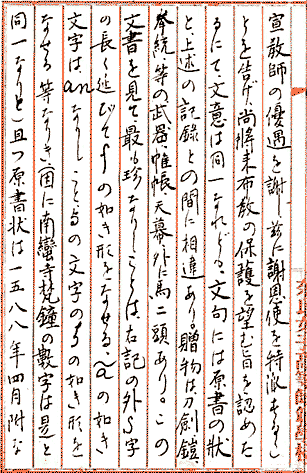 宣教師の優遇を謝し茲に謝恩使を特派すること
とを告げ尚将来布教の保護を望む旨を認めた
るにて、文意は同一なれども、文句には原書の状
と、上述の記録との間に相違あり。贈物は刀剣鎧
拳銃等の武器、帷帳天幕外に馬二頭あり。この
文書を見て最も珍なりしことは、右記の外S字
の長く延びてſの如き形をなせる、aの如き
文字は、anなりしこと等の文字のちの如き形を
なせる等なりき(因に南蛮寺梵鐘の数字は是と
同一なりと)且つ原書状は一五八八年四月附な